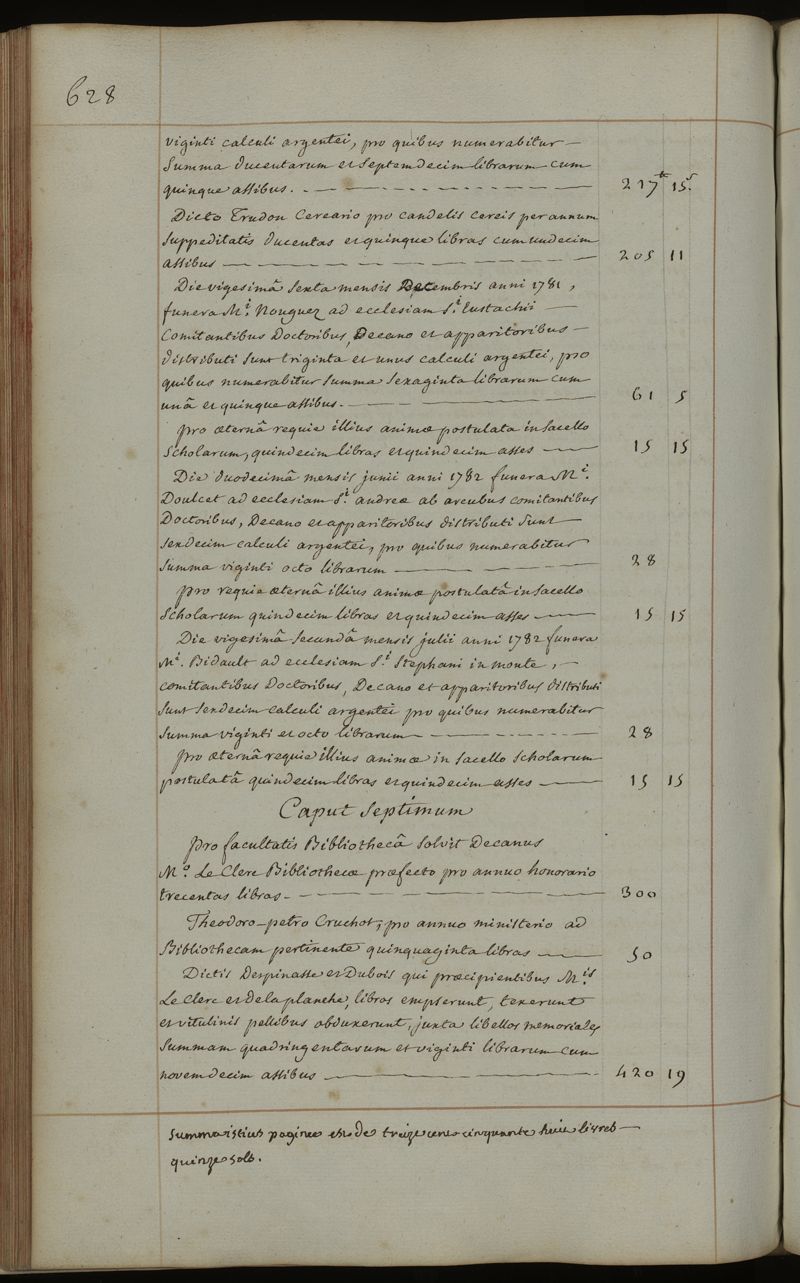 628
viginti calculi argentei, pro quibus numerabitur —
Summa ducentarum et septemdecim librarum cum
quinque assibus. 217 tt 15 s.
Dicto Trudon Cereario pro candelis cereis per annum
suppeditatis ducentas et quinque libras cum undecim
assibus 205 11
Die vigesimâ sexta mensis Decembris anni 1781,
funera Mi. Nouguez ad ecclesiam Si. Eustachii —
Comitantibus Doctoribus, Decano et apparitoribus —
distributi sunt triginta et unus calculi argentei, pro
quibus numerabitur summa sexaginta librarum cum
unâ et quinque assibus. 61 5
pro æternâ requie illius animæ postulata in sacello
Scholarum, quindecim libras et quindecim asses 15 15
Die duodecimâ mensis junii anni 1782 funera Mi.
Doulcet ad ecclesiam Si. andreæ ab arcubus comitantibus
Doctoribus, Decano et apparitoribus distributi sunt —
sexdecim calculi argentei, pro quibus numerabitur
summa viginti octo librarum 28
pro requie æternâ illius animæ postulatâ in sacello
Scholarum quindecim libras et quindecim asses 15 15
Die vigesimâ secundâ mensis julii anni 1782 funera
Mi. Bidault ad ecclesiam Si. Stephani in monte, —
comitantibus Doctoribus, Decano et apparitoribus distributi
sunt sexdecim calculi argentei pro quibus numerabitur
summa viginti et octo librarum 28
pro æternâ requie illius animæ in sacello Scholarum
postulatâ quindecim libras et quindecim asses 15 15
Caput Septimum
pro facultatis Bibliothecâ solvit Decanus
Mo. Le Clerc Bibliothecæ præfecto pro annuo honorario
trecentas libras 300
Theodoro-petro Cruchot, pro annuo ministerio ad
Bibliothecam pertinente quinquaginta libras 50
Dictis Despinasse et Dubois qui præcipientibus Mis.
Le Clerc et de la planche, libros empserunt, texerunt
et vitulinis pellibus obduxerunt, juxta libellos memoriales
summam quadringentarum et viginti librarum cum
novemdecim assibus 420 19
Summa istius paginæ est de treize cent cinquante huit livres —
quinze sols.